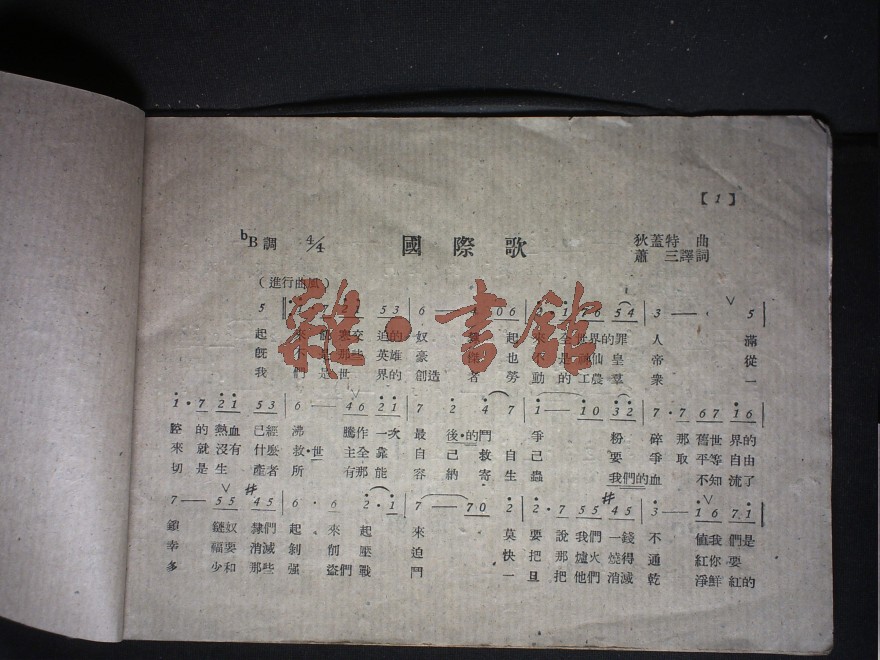 【1】
ᵇB調 4/4 國際歌 狄蓋特 曲
蕭 三譯詞
(進行曲風)
雜·書館
起 來 迫的 奴 起 來 全世界的罪 人 滿
旣 不 是 那些 英雄 豪 傑 也 不 是 神仙 皇 帝 從
我 們 是 世 界的 創造 者 勞 動 的 工農 羣 衆 一
1·7 21 53 6 — 46 21 7 2 4 7 1 — 10 32 7·7 67 16
腔 的 熱血 已經 沸 騰作 一次 最 後·的鬥 爭 粉 碎 那 舊世 界的
來 就 沒有 什麽 救·世 主全 靠 自 己 救 自 己 要 爭 取 平等 自由
切 是 生 產者 所 有那 能 容 納 寄 生 蟲 我們的血 不知 流了
7 — 55 45 6 · 6 2·1 7 — 70 2 2·7 55 45 3 — 16 71
鎖 鏈奴 隸們 起 來 起 來 莫 要 說 我們 一錢 不 値我 們是
幸 福要 消滅 剝 削 壓 迫 快 把 那 爐火 燒得 通 紅你 要
多 少和 那些 强 盜們 戰 鬥 一 旦 把 他們 消滅 乾 淨鮮 紅的